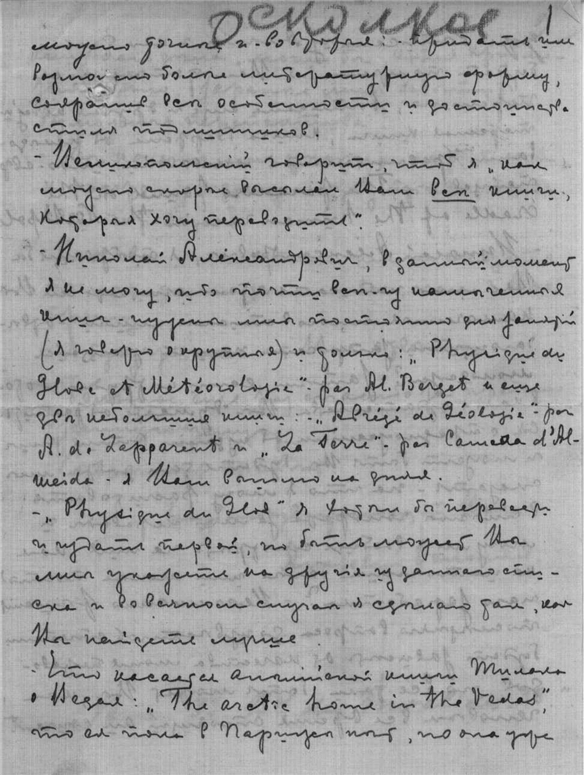 Осколков 1
можно точныя и во вторыя: придать им
возможно болѣе литературную форму,
сохранив всѣ особенности и достоинства
стиля подлинников.
- Великопольскій говорит, чтоб я „как
можно скорѣе выслал Вам всѣ книги,
которыя хочу переводить".
- Николай Александрович, в данный момент
я не могу, ибо почти всѣ намѣченныя
книги нужны мнѣ постоянно для занятій
(я говорю о крупныя) и только: „Physique du
Globe et Météorologie" par Al. Berget и еще
двѣ небольшія книги: „Abrégé de Géologie" par
A. de Lapparent и „La Terre" par Camena d'Al-
meida - я Вам вышлю на днях.
- „Physique du Globe" я хотѣл бы перевести
и издать первой, но быть может Вы
мнѣ укажете на другія из даннаго спи-
ска и во всяком случаѣ я сдѣлаю так, как
Вы найдете лучше
- Что касается англійской книги Тилака
о Ведах: „The arctic home in the Vedas",
то ея пока в Париже нѣт, но она уже